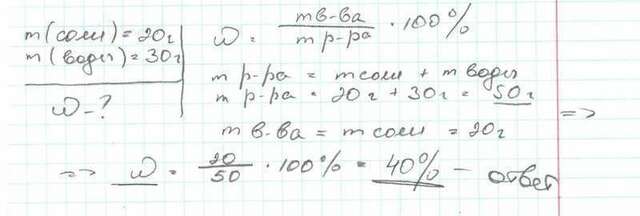 m(соли) = 20г
m(воды) = 30г
ω - ?
ω = m в-ва / m р-ра · 100%
m р-ра = m соли + m воды
m р-ра = 20г + 30г = 50г
m в-ва = m соли = 20г =>
=> ω = 20/50 · 100% = 40% - ответ